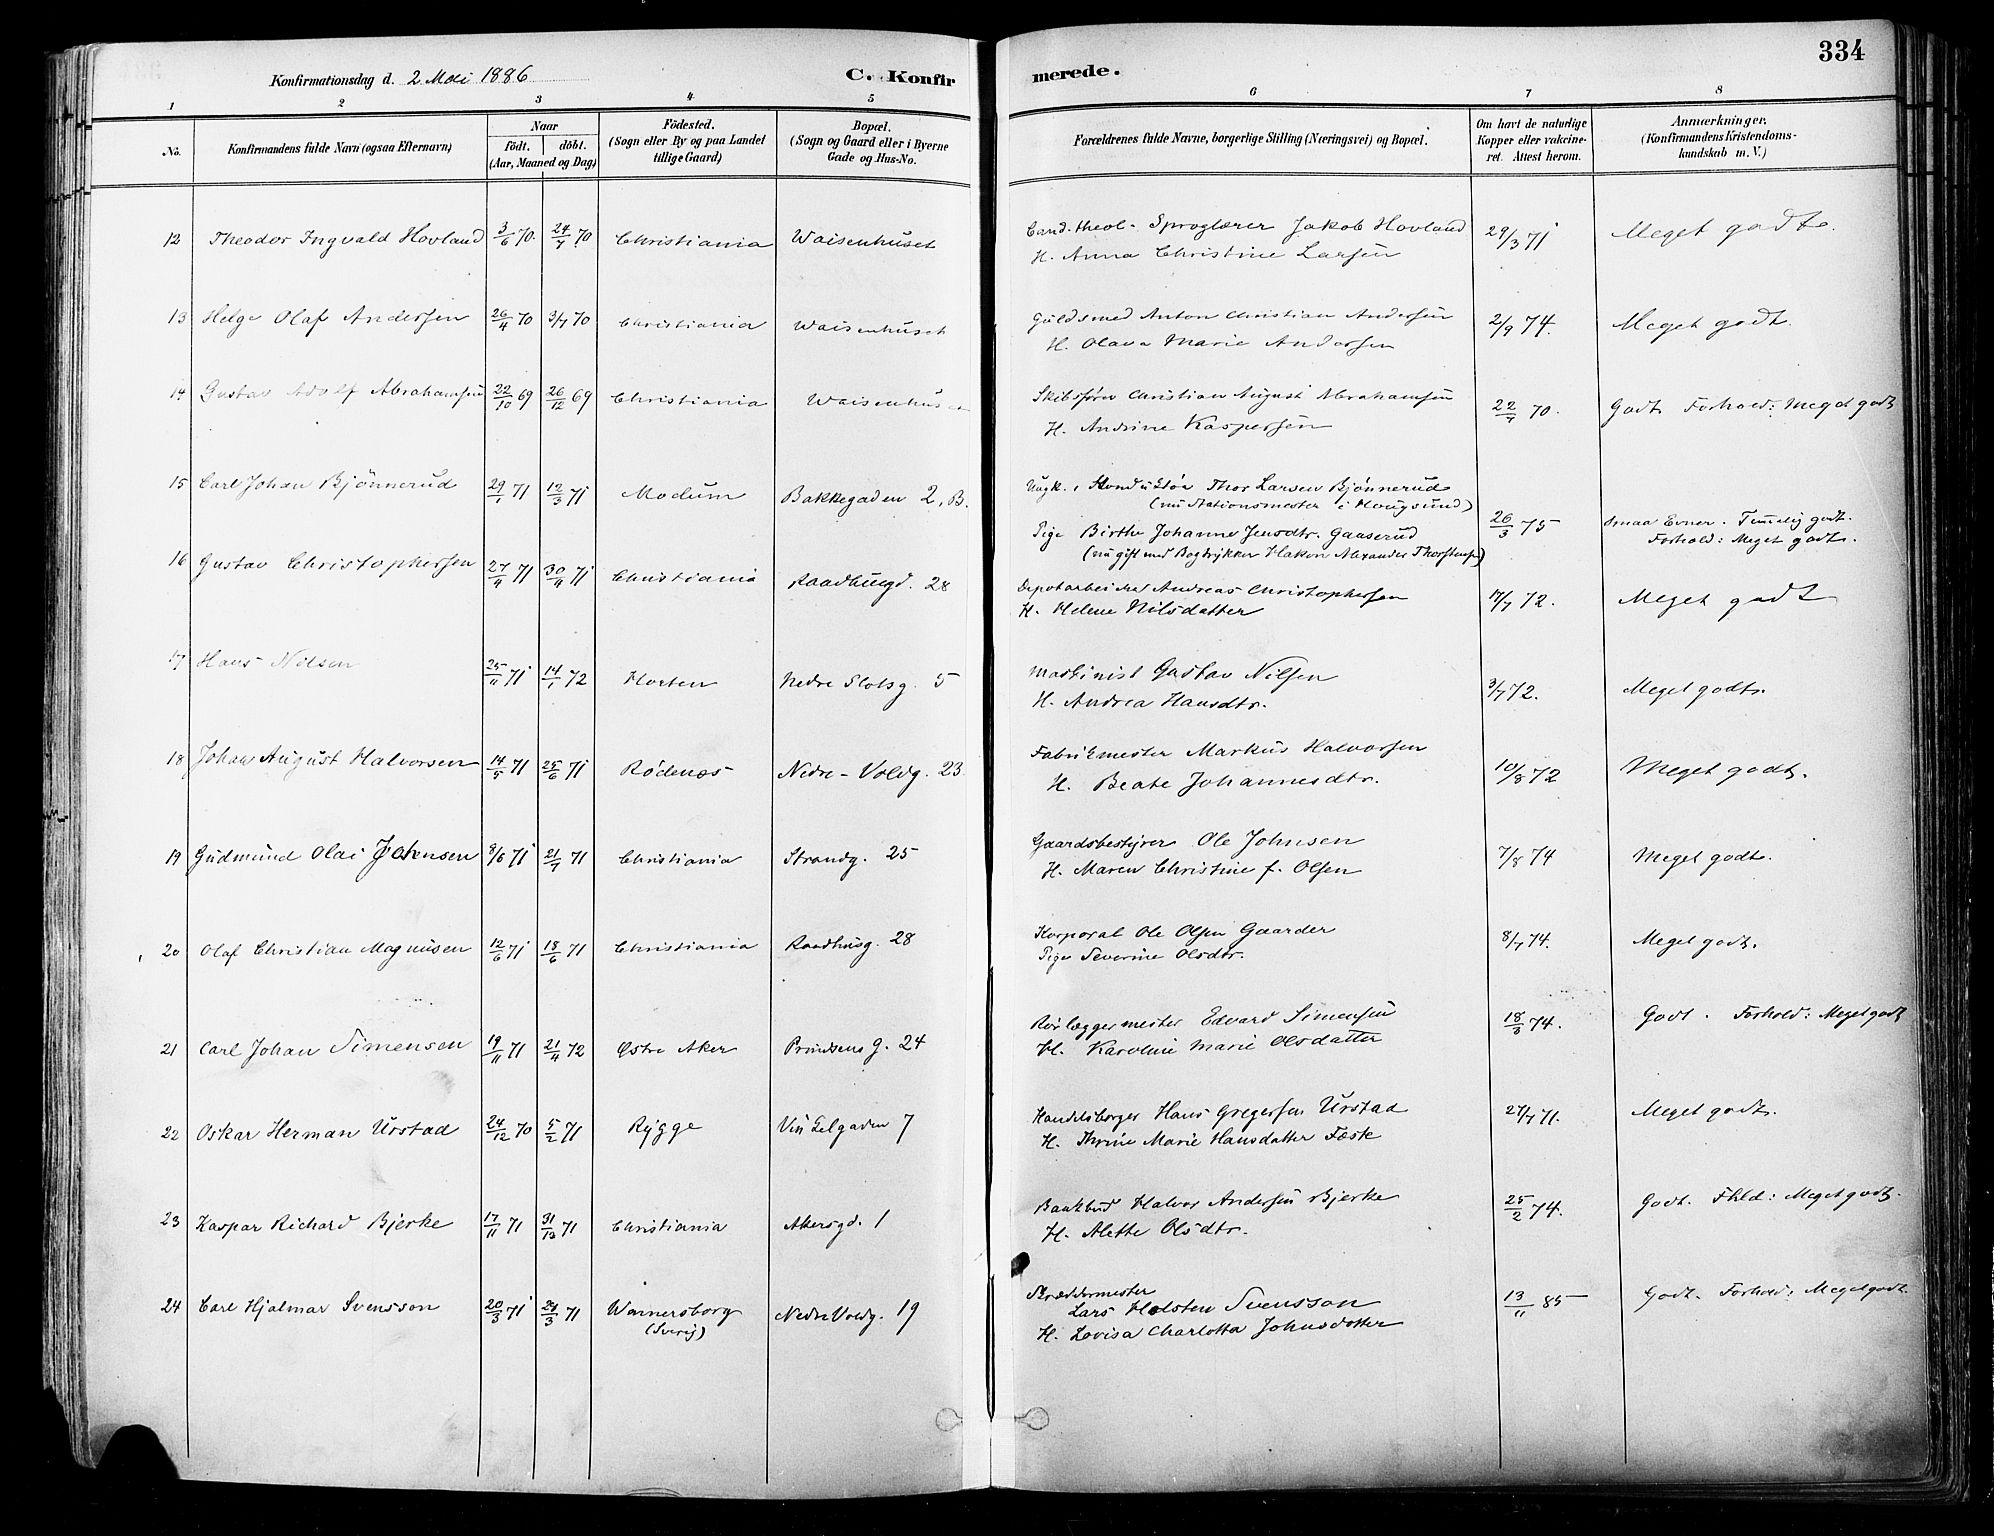 334
Konfirmationsdag d. 2 Mai 1886 C. Konfirmerede.
1 2 3 4 5 6 7 8
No. Konfirmandens fulde Navn (ogsaa Efternavn) Naar födt. döbt. (Aar, Maaned og Dag) Födested. (Sogn eller By og paa Landet tillige Gaard) Bopæl. (Sogn og Gaard eller i Byerne Gade og Hus-No. Forældrenes fulde Navne, borgerlige Stilling (Næringsvei) og Bopæl. Om havt de naturlige Kopper eller vakcineret. Attest herom. Anmærkninger. (Konfirmandens Kristendomskundskab m. V.)
12 Theodor Ingvald Hovland 3/6 70. 24/7 70 Christiania Waisenhuset Cand. theol. Sproglærer Jakob Hovland 29/3 71 Meget godt.
H. Anna Christine Larsen
13 Helge Olaf Andersen 26/4 70 3/7 70 Christiania Waisenhuset Guldsmed Anton Christian Andersen 2/9 74. Meget godt.
H. Olava Marie Andersen
14 Gustav Adolf Abrahamsen 22/10 69 26/12 69 Christiania Waisenhuset Skibsfører Christian August Abrahamsen 22/7 70. Godt. Forhold: Meget godt
H. Andrine Kaspersen
15 Carl Johan Bjönnerud 29/1 71 12/3 71 Modum Bakkegaden 2, B. Ungk., Konduktør Thor Larsen Bjønnerud
(nu Stationsmester i Hougsund)
Pige Birthe Johanne Jensdtr. Gaaserud 26/3 75 Smaa Evner. Temmelig godt.
(nu gift med Bogtrykker Hakon Alexander Thorstensen) Forhold: Meget godt.
16 Gustav Christophersen 27/9 71 30/11 71 Christiania Raadhusgd. 28 Depotarbeider Andreas Christophersen 17/7 72. Meget godt
H. Helene Nilsdatter
17 Hans Nilsen 25/11 71 14/1 72 Horten Nedre Slotsg. 5 Maskinist Gustav Nilsen 3/7 72. Meget godt.
H. Andrea Hansdtr.
18 Johan August Halvorsen 14/5 71 25/6 71 Rødenæs Nedre-Voldg. 23 Fabrikmester Markus Halvorsen 10/8 72 Meget godt.
H. Beate Johannesdtr.
19 Gudmund Olai Johnsen 8/6 71 21/7 71 Christiania Strandg. 25 Gaardsbestyrer Ole Johnsen 7/8 74 Meget godt.
H. Maren Christine f. Olsen
20 Olaf Christian Magnusen 12/6 71 18/6 71 Christiania Raadhusg. 28 Korporal Ole Olsen Gaarder 8/7 74. Meget godt.
Pige Severine Olsdtr.
21 Carl Johan Simensen 19/11 71 21/4 72 Østre Aker Prindsens G. 24 Rørlæggermester Edvard Simensen 18/3 74. Godt. Forhold: Meget godt
H. Karoline Marie Olsdatter
22 Oskar Herman Urstad 24/12 70 5/2 71 Rygge Vinkelgaden 7 Handelsborger Hans Gregersen Urstad 27/7 71. Meget godt.
H. Thrine Marie Hansdatter Fæste
23 Kaspar Richard Bjerke 17/11 71 31/12 71 Christiania Akersgd. 1 Bankbud Halvor Andersen Bjerke 25/2 74. Godt. Fhld: Meget godt.
H. Alette Olsdtr.
24 Carl Hjalmar Svensson 20/3 71 29/3 71 Wænersborg (Sverig) Nedre Voldg. 19 Skræddermester
Lars Holsten Svensson 13/11 85 Godt. Forhold: Meget godt.
H. Lovisa Charlotta Johnsdotter